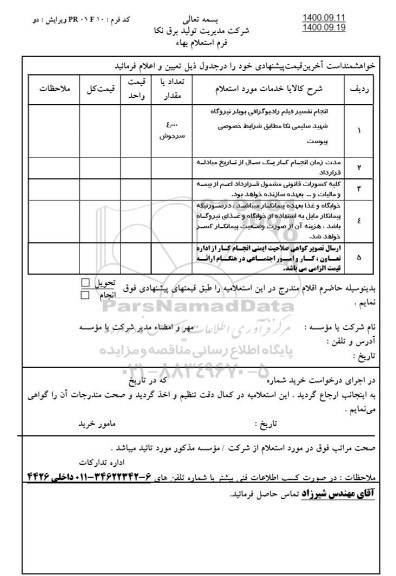 1400.09.11
1400.09.19
بسمه تعالی
کد فرم : PR ۰۱ F ۱۰ ویرایش : دو
شرکت مدیریت تولید برق نکا
فرم استعلام بهاء
خواهشمنداست آخرین‌قیمت‌پیشنهادی خود را درجدول ذیل تعیین و اعلام فرمائید
ردیف شرح کالایا خدمات مورد استعلام تعداد یا مقدار قیمت واحد قیمت‌کل ملاحظات
۱ انجام تفسیر فیلم رادیوگرافی بویلر نیروگاه شهید سلیمی نکا مطابق شرایط خصوصی پیوست ٤,۰۰۰ سرجوش
۲ مدت زمان انجام کار یک سال از تاریخ مبادله قرارداد
۳ کلیه کسورات قانونی مشمول قرارداد اعم از بیمه و مالیات و ... بعهده سازنده خواهد بود.
٤ خوابگاه و غذا بعهده پیمانکار میباشد . درصورتیکه پیمانکار مایل به استفاده از خوابگاه و غذای نیروگاه باشد ، هزینه آن از صورت وضعیت پیمانکار کسر خواهد شد.
۵ ارسال تصویر گواهی صلاحیت ایمنی انجام کار از اداره تعاون ، کار و امور اجتماعی در هنگام ارائه قیمت الزامی می باشد.
بدینوسیله حاضرم اقلام مندرج در این استعلامیه را طبق قیمتهای پیشنهادی فوق تحویل انجام نمایم .
ParsNamadData
مرکز فرآوری اطلاعات
پایگاه اطلاع رسانی مناقصه و مزایده
۰۲۱-۸۸۳۴۹۶۷۰-۵
نام شرکت یا مؤسسه : مهر و امضاء مدیر شرکت یا مؤسسه
آدرس و تلفن :
تاریخ :
در اجرای درخواست خرید شماره که در تاریخ
به اینجانب ارجاع گردید . این استعلامیه در کمال دقت تنظیم و اخذ گردید و صحت مندرجات آن را گواهی
می‌نمایم .
تاریخ : مامور خرید
صحت مراتب فوق در مورد استعلام از شرکت / مؤسسه مذکور مورد تائید میباشد .
اداره تدارکات
ملاحظات : در صورت کسب اطلاعات فنی بیشتر با شماره تلفن های ۶-۳۴۶۲۲۳۴۲-۰۱۱ داخلی ۴۴۲۶
آقای مهندس شیرزاد تماس حاصل فرمائید.